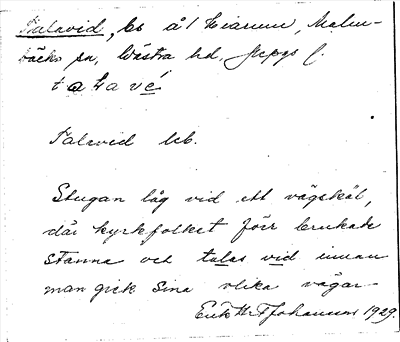 Talavid, bs å 1 Hiarum, Malm-
bäcks sn, Västra hd, Jkpgs l.
talavé
Talavid lbt.
Stugan låg vid ett vägskäl,
där kyrkfolket förr brukade
stanna och talas vid innan
man gick sina olika vägar.
Erik H Johanson 1929.